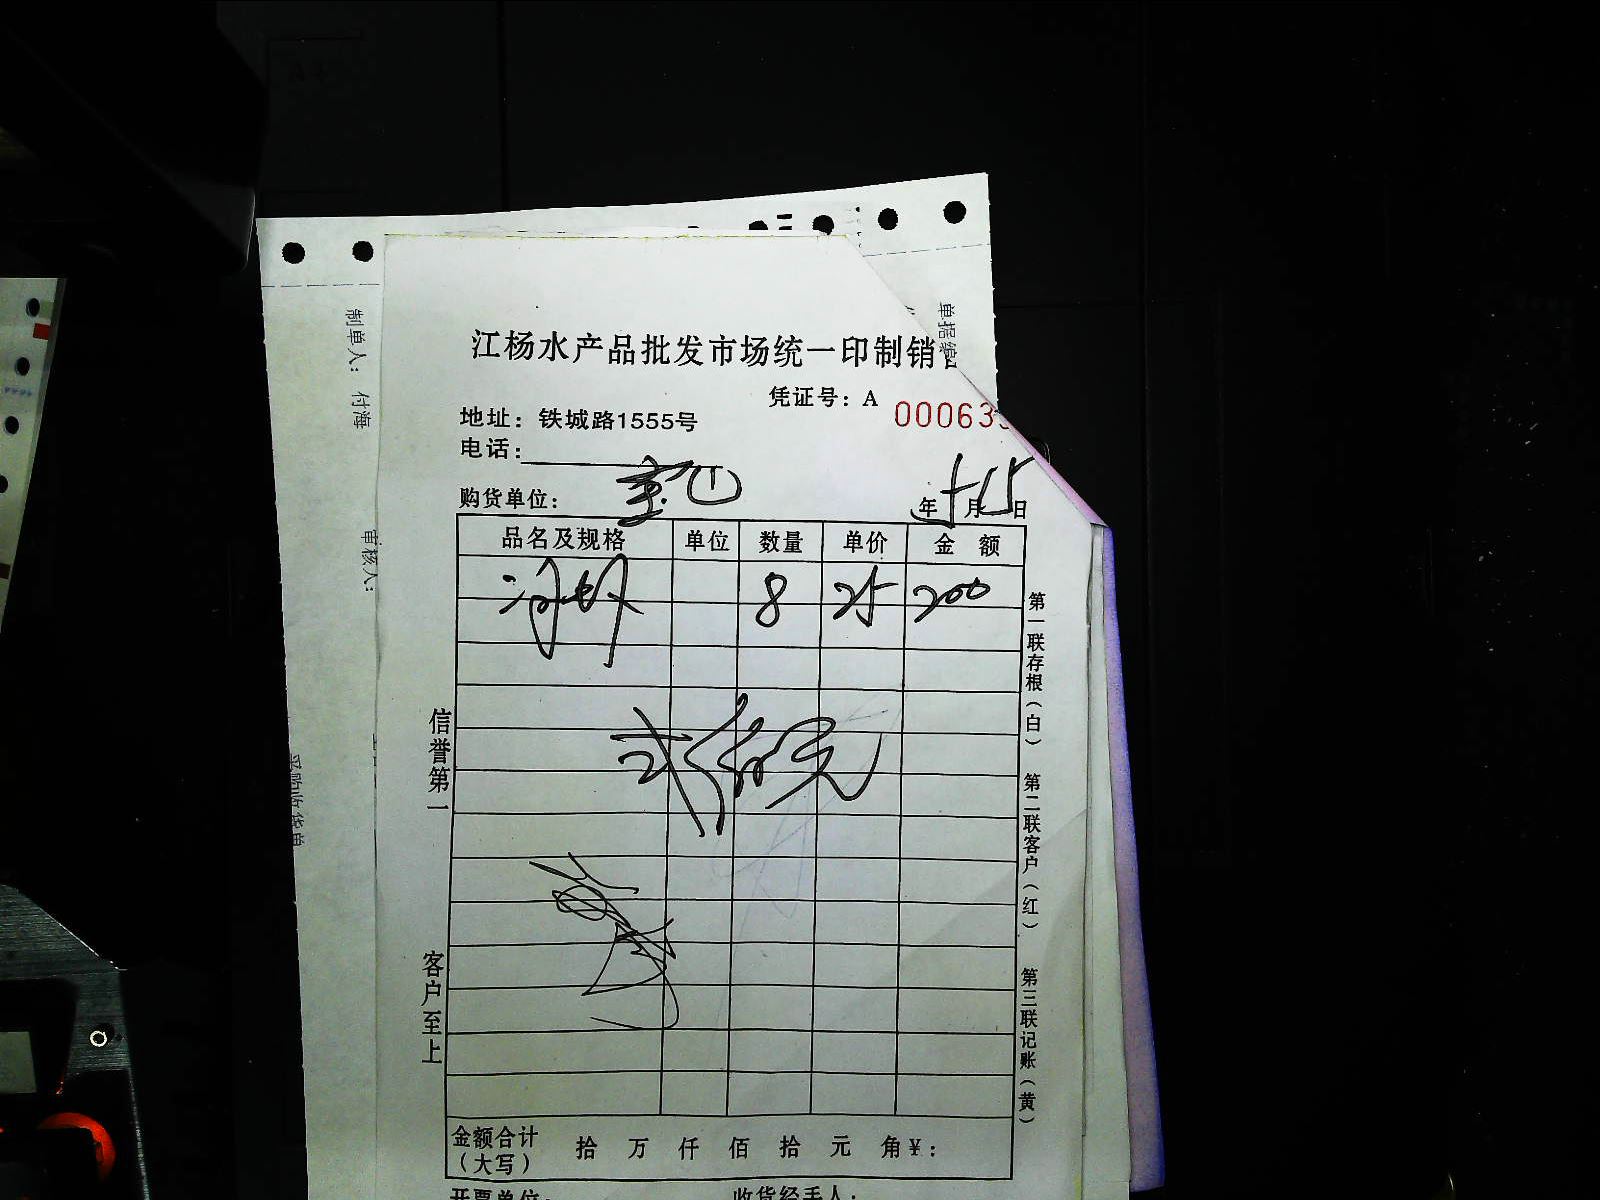 江杨水产品批发市场统一印制销
凭证号：A 00063
地址：铁城路1555号
电话：
购货单位：
年 月 15 日
品名及规格 单位 数量 单价 金额
8 25 200
贰佰元
信誉第一
客户至上
第一联存根（白） 第二联客户（红） 第三联记账（黄）
金额合计（大写） 拾 万 仟 佰 拾 元 角 ¥：
开票单位： 收货经手人：
制单人： 付海
审核人：
单据
采购收货单